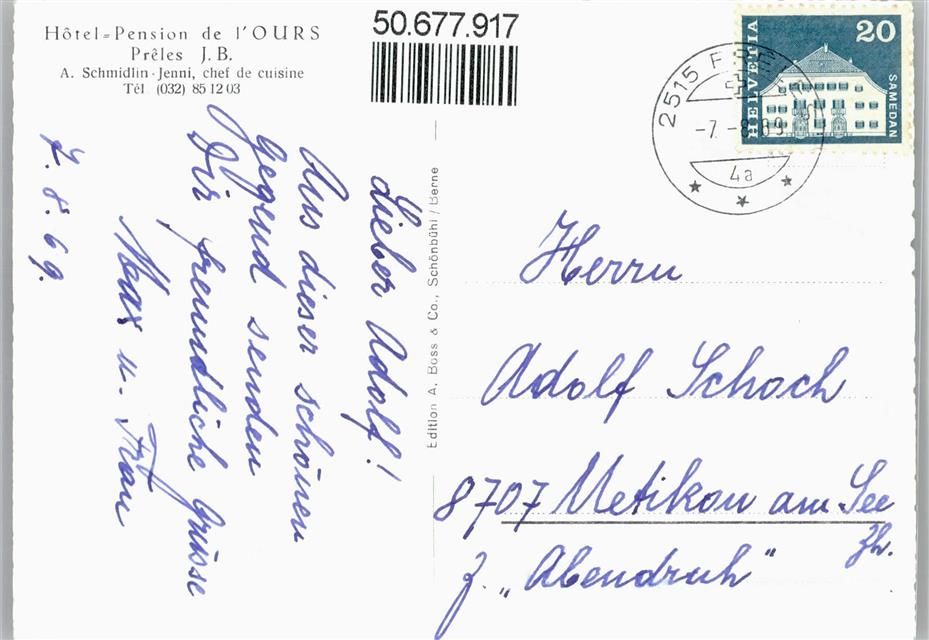 Hôtel-Pension de l'OURS
Prêles J.B.
A. Schmidlin-Jenni, chef de cuisine
Tél (032) 85 12 03
50.677.917
7. 8. 69.
Lieber Adolf!
Aus dieser schönen
Gegend senden
Dir freundliche Grüsse
Max u. Frau
Edition A. Boss & Co., Schönbühl / Berne
HELVETIA
20
SAMEDAN
2515 PRÊLES
-7.-8.69
4a
Herrn
Adolf Schoch
8707 Uetikon am See
Zh.
z. „Abendruh"